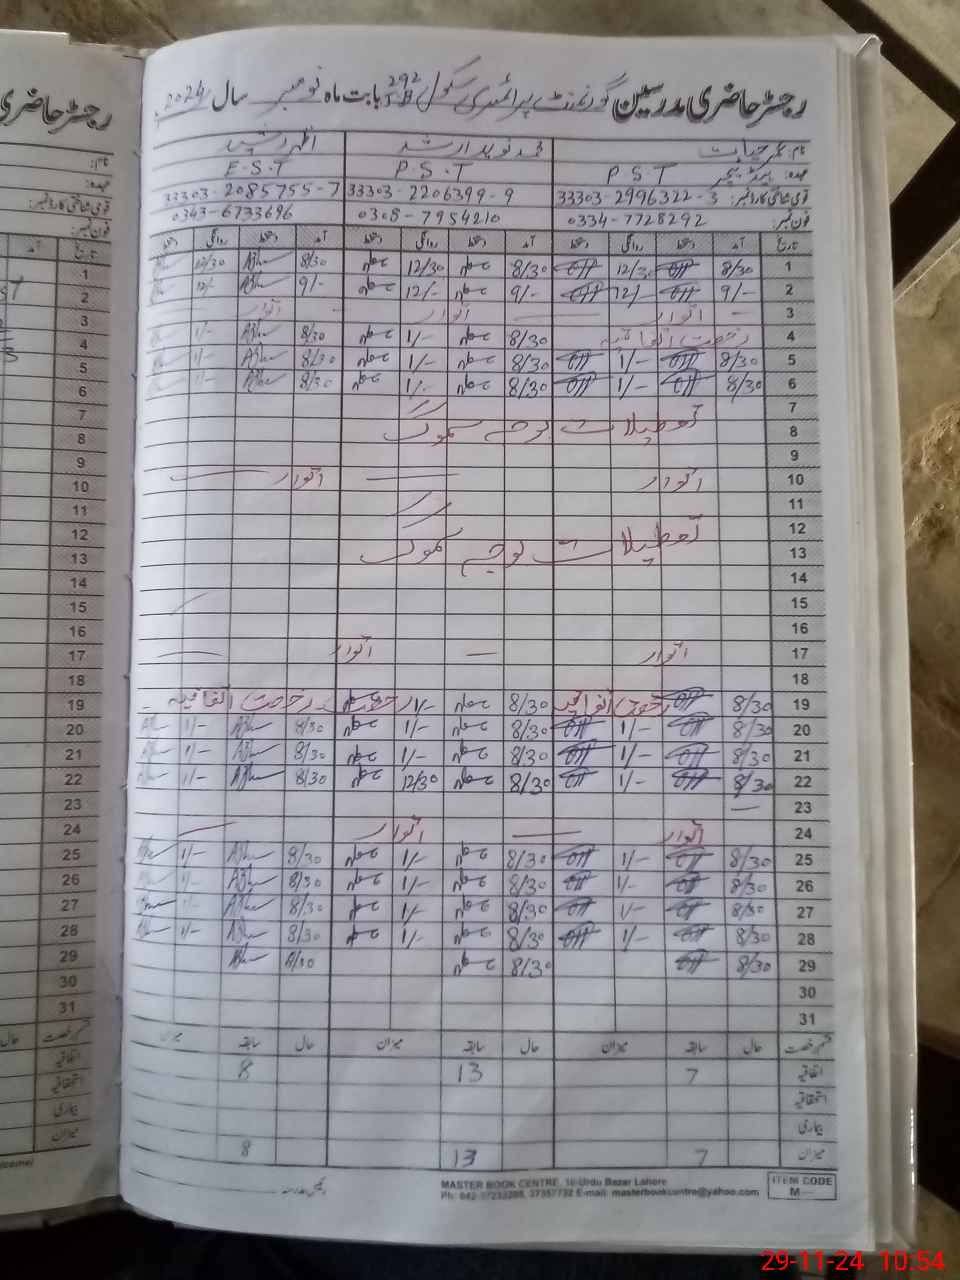 رجسٹر حاضری مدرسین گورنمنٹ پرائمری سکول 292 بابت ماہ نومبر سال 2024
نام: عمر حیات محمد نوید ارشد اظہر
عہدہ: P.S.T P.S.T E.S.T
قومی شناختی کارڈ نمبر: 33303-2996322-3 33303-2206399-9 33303-2085755-7
فون نمبر: 0334-7728292 0308-7954210 0343-6733696
تاریخ آمد دستخط روانگی دستخط آمد دستخط روانگی دستخط آمد دستخط روانگی دستخط
1 8/30 12/30 8/30 12/30 8/30 12/30
2 9/- 12/- 9/- 12/- 9/- 12/-
3 اتوار اتوار اتوار
4 رخصت اتفاقیہ 8/30 1/- 8/30 1/-
5 8/30 1/- 8/30 1/- 8/30 1/-
6 8/30 1/- 8/30 1/- 8/30 1/-
7
8 تعطیلات بوجہ سموگ
9
10 اتوار اتوار
11
12
13 تعطیلات بوجہ سموگ
14
15
16
17 اتوار اتوار
18
19 8/30 رخصت اتفاقیہ 8/30 1/- رخصت اتفاقیہ
20 8/30 1/- 8/30 1/- 8/30 1/-
21 8/30 1/- 8/30 1/- 8/30 1/-
22 8/30 1/- 8/30 12/30 8/30 1/-
23
24 اتوار اتوار
25 8/30 1/- 8/30 1/- 8/30 1/-
26 8/30 1/- 8/30 1/- 8/30 1/-
27 8/30 1/- 8/30 1/- 8/30 1/-
28 8/30 1/- 8/30 1/- 8/30 1/-
29 8/30 8/30 8/30
30
31
قسم رخصت حال سابقہ میزان حال سابقہ میزان حال سابقہ میزان
اتفاقیہ 7 13 8
استحقاقیہ
بیماری
میزان 7 13 8
MASTER BOOK CENTRE, 10-Urdu Bazar Lahore
Ph: 042-37233208, 37357732 E-mail: masterbookcentre@yahoo.com
ITEM CODE
M—
29-11-24 10:54